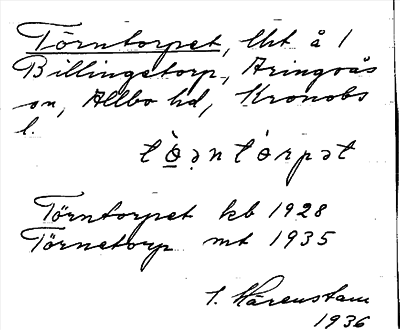 Törntorpet, lht å 1
Billingetorp, Aringsås
sn, Allbo hd, Kronobs
l.
Törntorpet kb 1928
Törnetorp mt 1935
Härenstam
1936